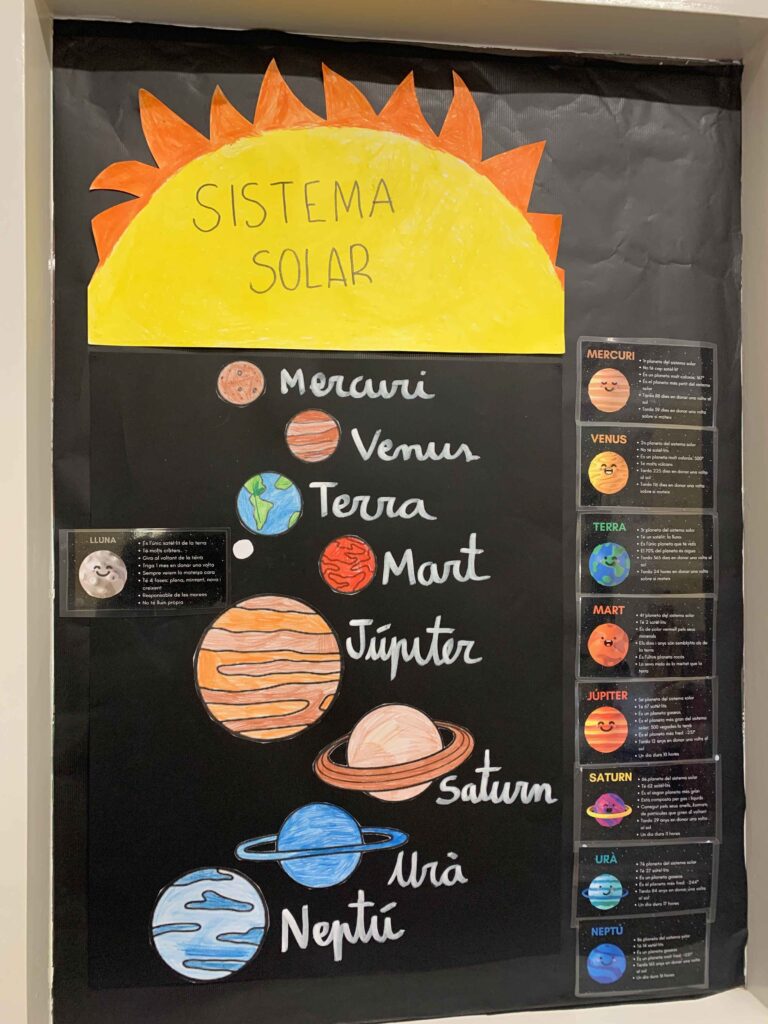 SISTEMA
SOLAR
Mercuri
Venus
Terra
Mart
Júpiter
Saturn
Urà
Neptú
LLUNA
• És l'únic satèl·lit de la terra
• Té molts cràters.
• Gira al voltant de la terra
• Triga 1 mes en donar una volta
• Sempre veiem la mateixa cara
• Té 4 fases: plena, minvant, nova i
creixent
• Responsable de les marees
• No té llum pròpia
MERCURI
• 1r planeta del sistema solar
• No té cap satèl·lit
• És un planeta molt calorós: 167º
• És el planeta més petit del sistema
solar
• Tarda 88 dies en donar una volta al
sol
• Tarda 59 dies en donar una volta
sobre si mateix
VENUS
• 2n planeta del sistema solar
• No té satèl·lit
• És un planeta molt calorós: 500º
• Té molts volcans
• Tarda 225 dies en donar una volta
al sol
• Tarda 116 dies en donar una volta
sobre si mateix
TERRA
• 3r planeta del sistema solar
• Té un satèl·lit: la lluna
• És l'únic planeta que té vida
• El 70% del planeta és aigua
• Tarda 365 dies en donar una volta al
sol
• Tarda 24 hores en donar una volta
sobre si mateix
MART
• 4t planeta del sistema solar
• Té 2 satèl·lits
• És de color vermell pels seus
minerals
• Els dies i anys són semblants als de
la terra
• És l'últim planeta rocós
• La seva mida és la meitat que la
terra
JÚPITER
• 5è planeta del sistema solar
• Té 67 satèl·lits
• És un planeta gasós
• És el planeta més gran del sistema
solar: 500 vegades la terra
• És el planeta més fred:
• Tarda 12 anys en donar una volta al
sol
• Un dia dura 10 hores
SATURN
• 6è planeta del sistema solar
• Té 62 satèl·lits
• És el segon planeta més gran
• Està composta per gas i líquids
• Conegut pels seus anells, formats
de partícules que giren al voltant
• Tarda 29 anys en donar una volta al
sol
• Un dia dura 11 hores
URÀ
• 7è planeta del sistema solar
• Té 27 satèl·lits
• És un planeta gasós
• És el planeta més fred:
• Tarda 84 anys en donar una volta
al sol
• Un dia dura 17 hores
NEPTÚ
• 8è planeta del sistema solar
• Té 14 satèl·lits
• És un planeta gasós
• És un planeta molt fred:
• Tarda 165 anys en donar una volta al
sol
• Un dia dura 16 hores